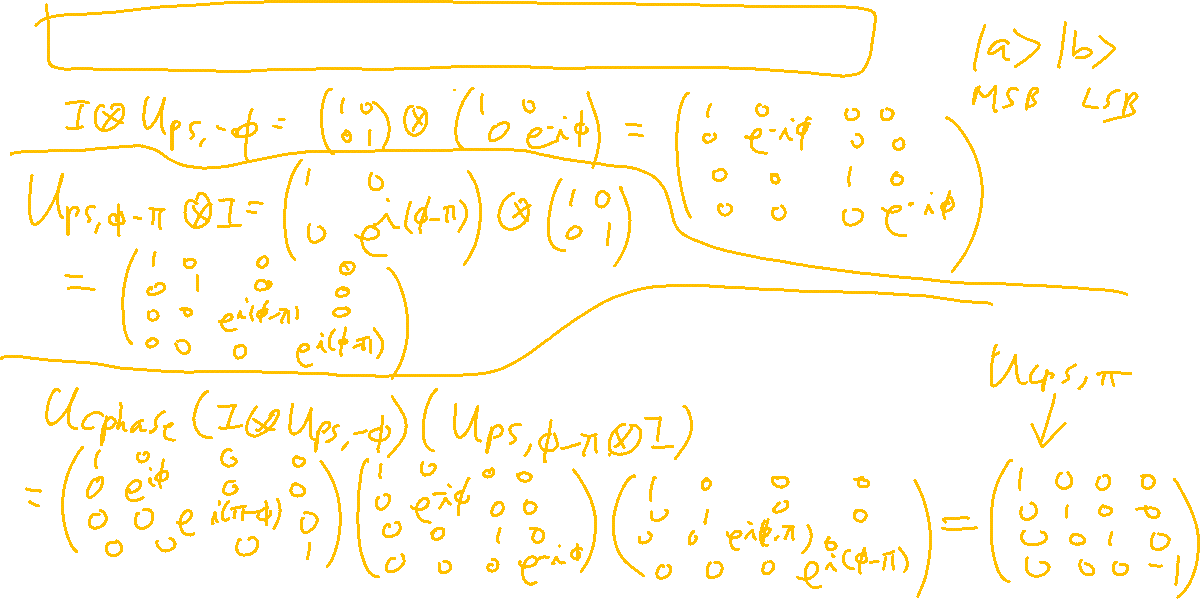 |a> |b>
MSB LSB
I⊗U_{ps,-ϕ} = (1 0; 0 1) ⊗ (1 0; 0 e^{-iϕ}) = (1 0 0 0; 0 e^{-iϕ} 0 0; 0 0 1 0; 0 0 0 e^{-iϕ})
U_{ps,ϕ-π} ⊗ I = (1 0; 0 e^{i(ϕ-π)}) ⊗ (1 0; 0 1)
= (1 0 0 0; 0 1 0 0; 0 0 e^{i(ϕ-π)} 0; 0 0 0 e^{i(ϕ-π)})
U_{cps,π}
U_{cphase} (I⊗U_{ps,-ϕ}) (U_{ps,ϕ-π}⊗I)
= (1 0 0 0; 0 e^{iϕ} 0 0; 0 0 e^{i(π-ϕ)} 0; 0 0 0 1) (1 0 0 0; 0 e^{-iϕ} 0 0; 0 0 1 0; 0 0 0 e^{-iϕ}) (1 0 0 0; 0 1 0 0; 0 0 e^{i(ϕ-π)} 0; 0 0 0 e^{i(ϕ-π)}) = (1 0 0 0; 0 1 0 0; 0 0 1 0; 0 0 0 -1)